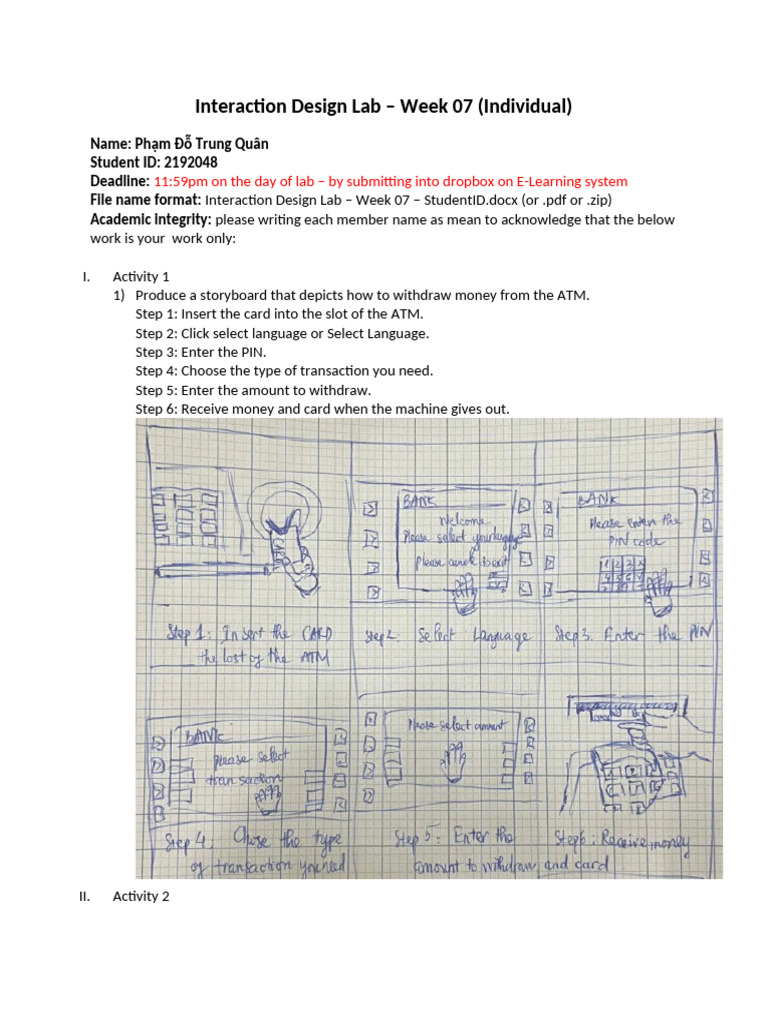 Interaction Design Lab – Week 07 (Individual)
Name: Phạm Đỗ Trung Quân
Student ID: 2192048
Deadline: 11:59pm on the day of lab – by submitting into dropbox on E-Learning system
File name format: Interaction Design Lab – Week 07 – StudentID.docx (or .pdf or .zip)
Academic integrity: please writing each member name as mean to acknowledge that the below
work is your work only:
I. Activity 1
1) Produce a storyboard that depicts how to withdraw money from the ATM.
Step 1: Insert the card into the slot of the ATM.
Step 2: Click select language or Select Language.
Step 3: Enter the PIN.
Step 4: Choose the type of transaction you need.
Step 5: Enter the amount to withdraw.
Step 6: Receive money and card when the machine gives out.
CARD
Step 1: Insert the CARD
the lost of the ATM
BANK
Welcome
Please select your language
Please to exit
Step 2 Select Language
BANK
Please enter the
PIN code
1 2 3
4 5 6
Step 3. Enter the PIN
BANK
Please select
transaction
Step 4: Chose the type
of transaction you need
Please select amount
Step 5: Enter the
amount to withdraw
Step 6: Receive money
and card
II. Activity 2